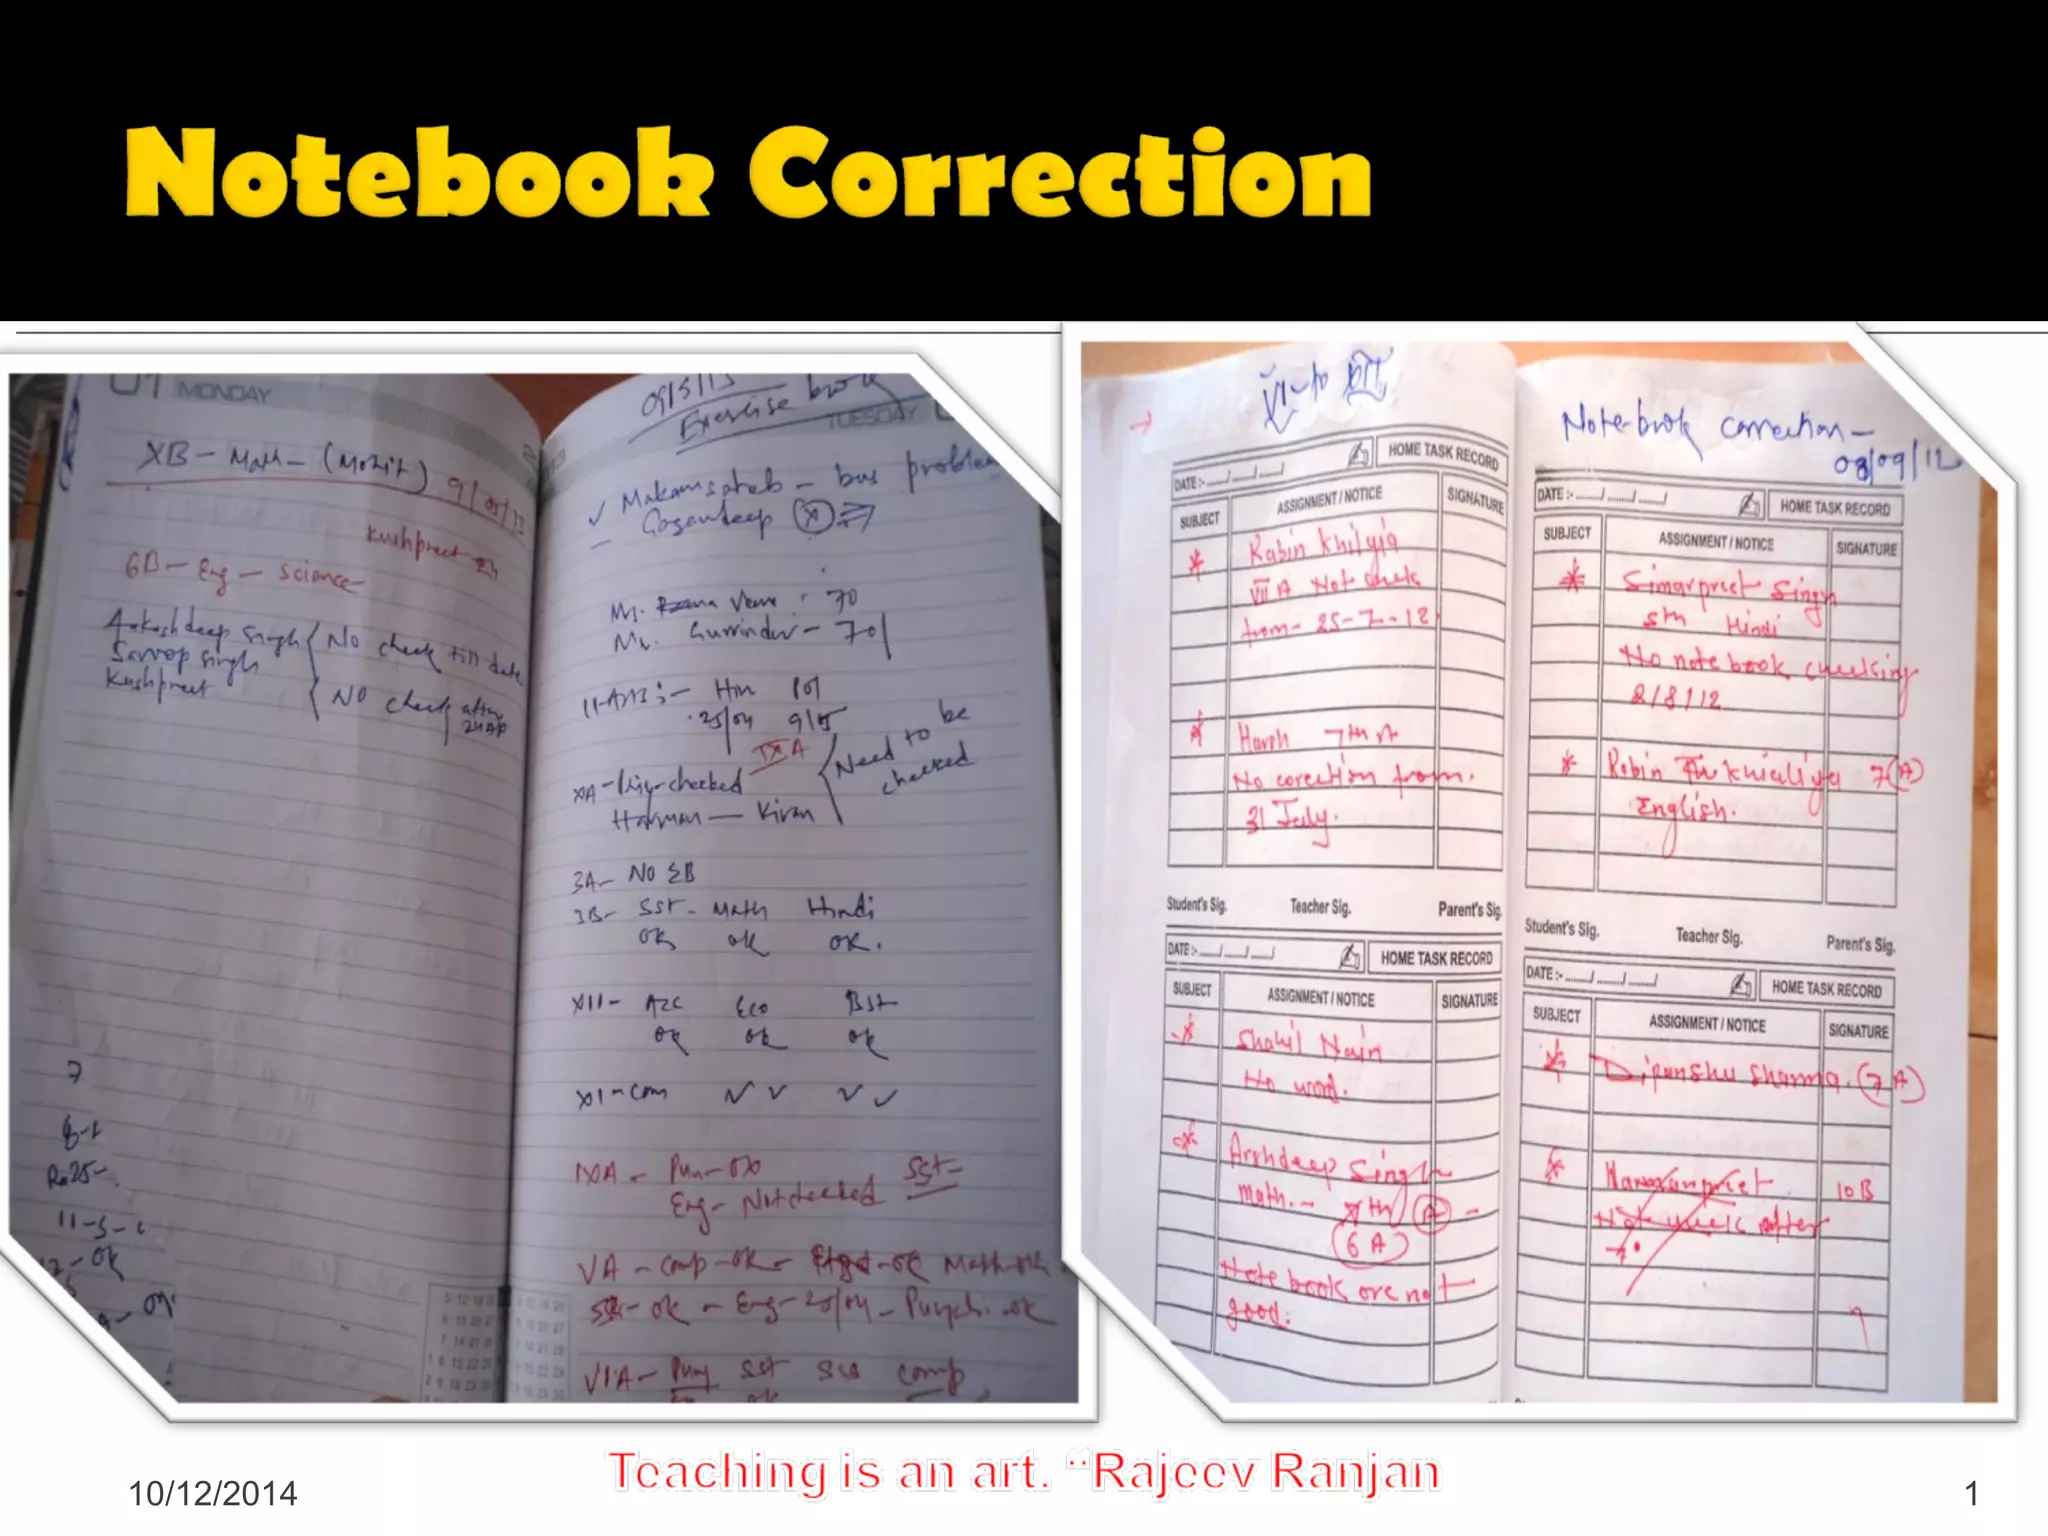 Notebook Correction
01 MONDAY
XB - Math - (Mohit) 9/05/13
Kushpreet
6B - Eng - Science
Aakashdeep Singh No check till date
Singh
Kushpreet No check after
09/5/13
Exercise book
TUESDAY
Makamsaheb - bus problem
Gagandeep (X)
Ms. Veena : 70
Mr. Gurvinder - 70
Hin Pol
25/04 9/5
IXA
XA - checked Need to be
Harman - Kiran checked
3A - NO EB
3B - SST - Math Hindi
OK ok OK.
XII - Acc Eco BSt
OK OK ok
XI - Com
7
IXA - Pun - OK SSt
Eng - Not checked
VA - Comp - OK - OK Math - ok
ok - Eng - 20/04 - Punjabi - ok
VIA - Punj SSt Sci Comp
Note-book correction -
08/09/12
DATE :- HOME TASK RECORD
SUBJECT ASSIGNMENT / NOTICE SIGNATURE
* Rabin Khilyia
VII A Not check
from - 25-7-12
* Harsh 7th A
No corection from.
31 July.
Student's Sig. Teacher Sig. Parent's Sig.
DATE :- HOME TASK RECORD
SUBJECT ASSIGNMENT / NOTICE SIGNATURE
* Shahil Nain
No word.
* Arshdeep Singh
Math. - 7th (A) -
(6 A)
Note books are not
good.
DATE :- HOME TASK RECORD
SUBJECT ASSIGNMENT / NOTICE SIGNATURE
* Simarpreet Singh
5th Hindi
No note book checking
2/8/12
* Robin Khialiya 7(A)
English.
Student's Sig. Teacher Sig. Parent's Sig.
DATE :- HOME TASK RECORD
SUBJECT ASSIGNMENT / NOTICE SIGNATURE
* Dipanshu Sharma. (7 A)
* Harmanpreet 10B
Not check after
10/12/2014
Teaching is an art. “Rajeev Ranjan
1